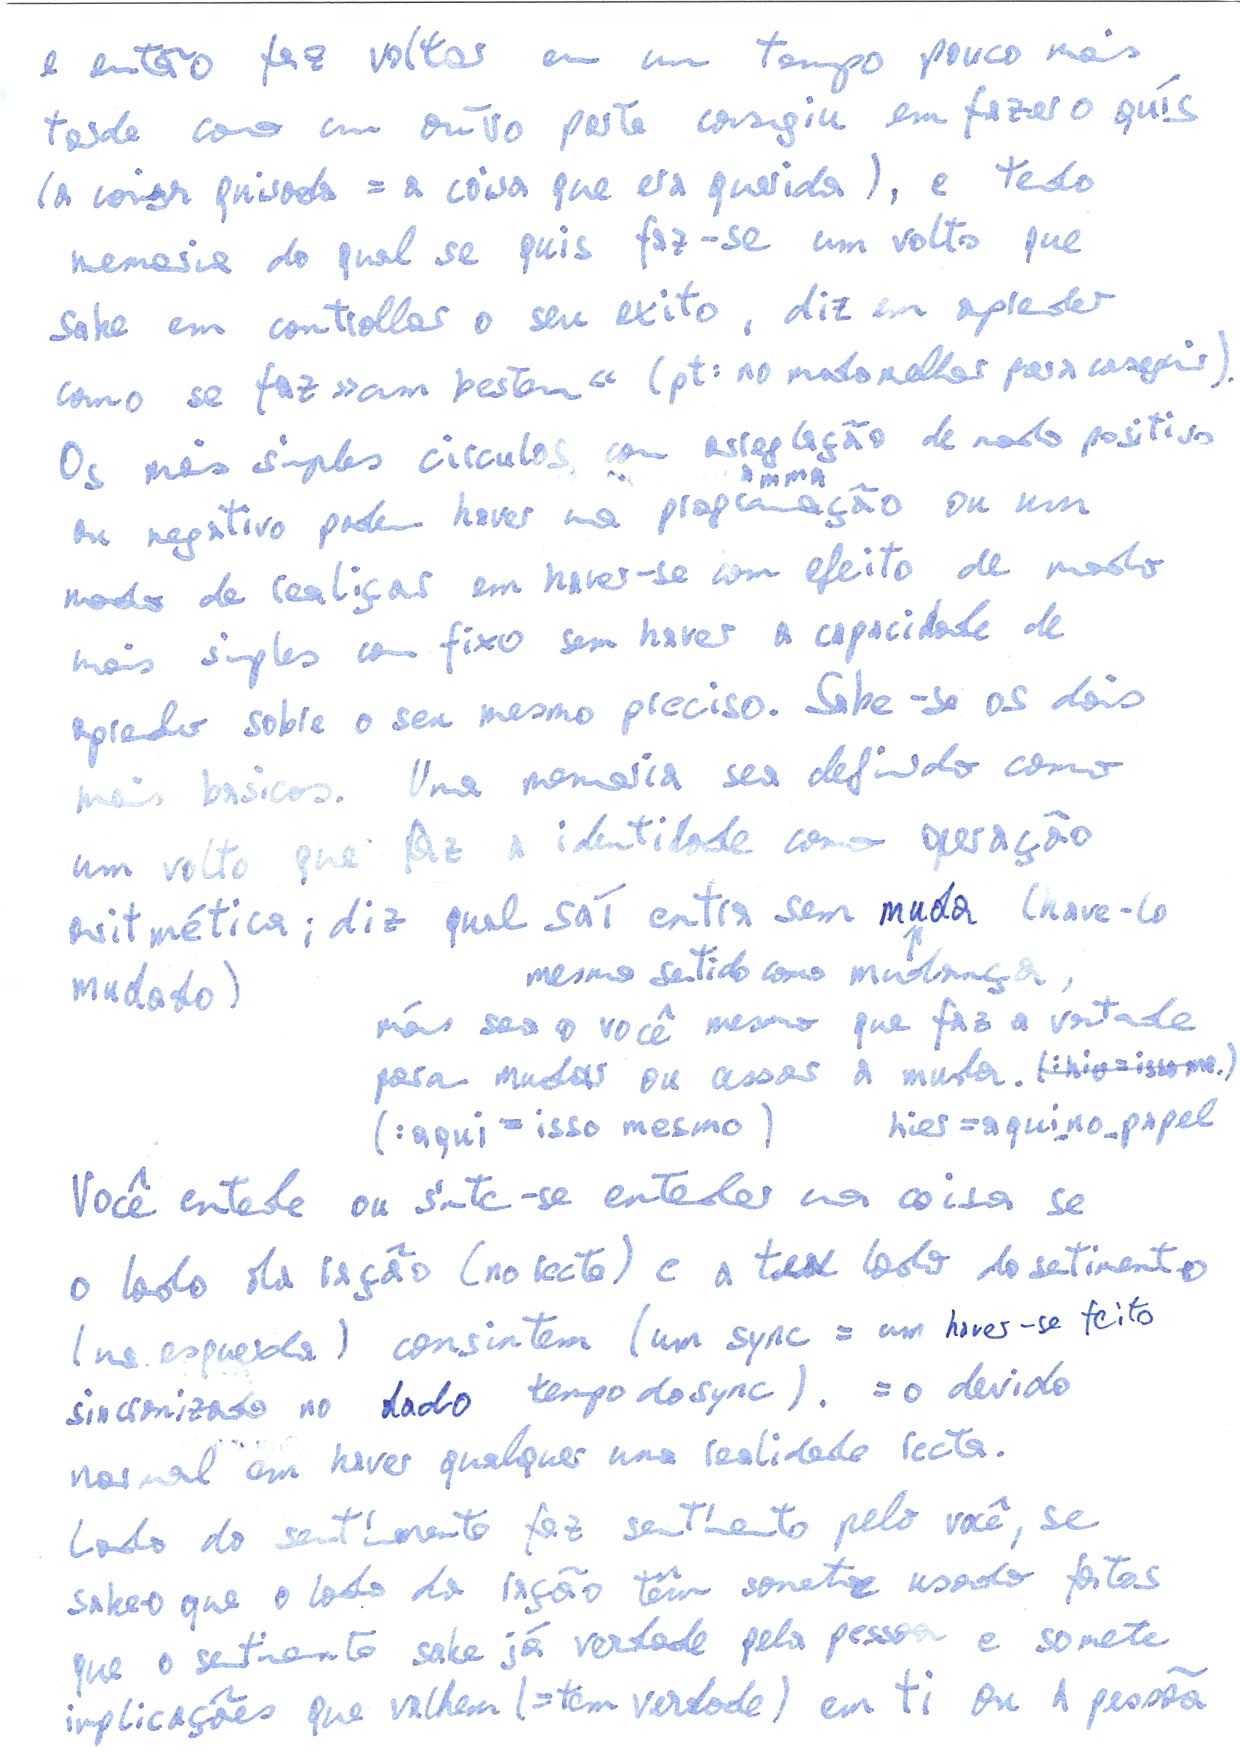 e então faz voltar em um tempo pouco mais
tarde como um outro parte consegiu em fazer o quis
(a coisa quisada = a coisa que era querida), e tedo
memoria do qual se quis faz-se um volto que
sabe em controllar o seu exito, diz em apreder
como se faz »am besten“ (pt: no modo melhor para conseguir).
Os mais simples circulos, com asreglação de modo positivo
ou negativo podem haver na programação ou um
amma
modo de realiçar em haver-se com efeito de modo
mais simples com fixo sem haver a capacidade de
apreder sobre o seu mesmo preciso. Sabe-se os dois
mais basicos. Uma memoria sea definido como
um volto que faz a identidade como operação
aritmética; diz qual saí entra sem muda (have-lo
mudado)
mesmo setido como mudança,
más sea o você mesmo que faz a vontade
para mudar ou cessar a muda.
(:aqui = isso mesmo) hier = aqui no papel
Você entede ou sinte-se enteder na coisa se
o lado da ração (no recto) e a lado do setimento
(na esquerda) consintem (um sync = um haver-se feito
sincronizado no dado tempo do sync). = o devido
normal em haver qualquer uma realidade recta.
Lado do sentimento faz sentimento pelo você, se
sabe-o que o lado da ração têm somete usado feitas
que o sentimento sabe já verdade pela pessoa e somete
implicações que valhem (= tem verdade) em ti ou a pessoa